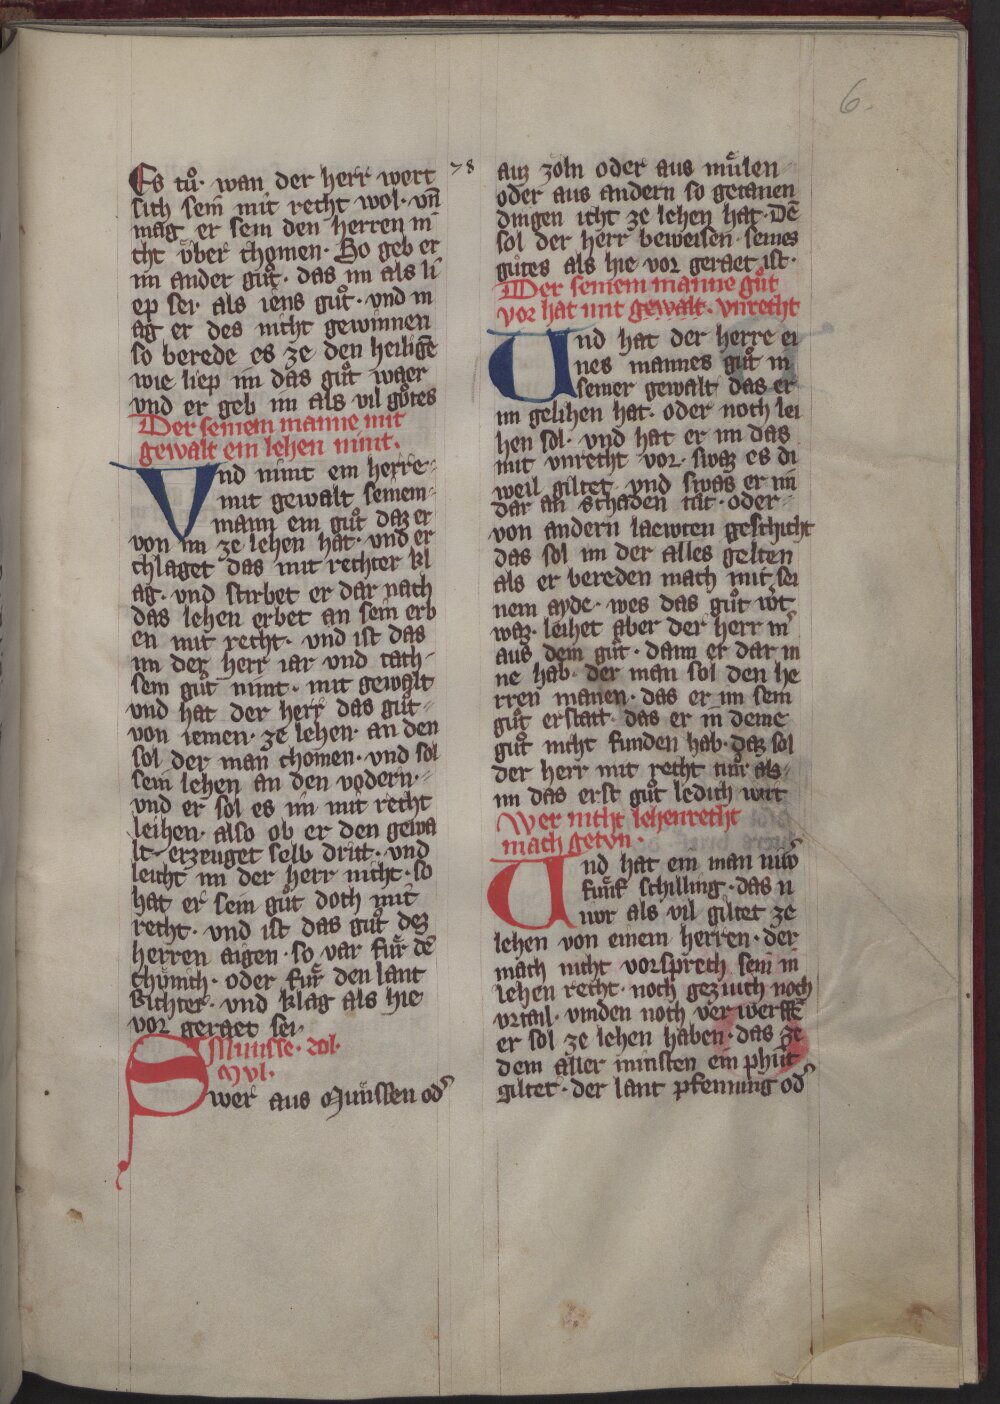 6.
78
Es tuͦ· wan der herr wert
sich sein mit recht wol· vn̄
mag er sein den herren ni
cht vͤber chomen· So geb er
im ander guͦt· das im als li
ep sei· als iens guͦt· vnd m
ag er des nicht gewinnen
so berede es ze den heiligē
wie liep im das guͦt waer
vnd er geb im als vil guͦtes
Der seinem manne mit
gewalt ein lehen nimt.
Vnd nimt ein herre
mit gewalt seinem
mann ein guͦt daz er
von im ze lehen hat· vnd er
chlaget das mit rechter kl
ag· vnd stirbet er dar nach
das lehen erbet an sein erb
en mit recht· vnd ist das
im der herr iar vnd tach
sein guͦt nimt· mit gewalt
vnd hat der herr das guͦt
von iemen· ze lehen· an den
sol der man chomen· vnd sol
sein lehen an den vodern·
vnd er sol es im mit recht
leihen· also ob er den gewa
lt erzeuget selb dritt· vnd
leicht im der herr nicht· so
hat er sein guͦt doch mit
recht· vnd ist das guͦt dez
herren aigen· so var fuͤr dē
chuͤnich· oder fuͤr den lant
Richter· vnd klag als hie
vor geraet sei·
Munsse· zol·
Mvl·
Swer aus Muͤnssen od᾽
auz zoͤln oder aus muͤlen
oder aus andern so getanen
dingen icht ze lehen hat· Dē
sol der herr beweisen seines
guͤtes als hie vor geraet ist·
Der seinem manne guͦt
vor hat mit gewalt· vnrecht
Und hat der herre ei
nes mannes guͦt in
seiner gewalt das er
im gelihen hat· oder noch lei
hen sol· vnd hat er im das
mit vnrecht vor· swaz es di
weil giltet· vnd swas er im
dar an schaden tuͤt· oder
von andern laewten geschicht
das sol im der alles gelten
als er bereden mach mit sei
nem ayde· wes das guͦt w᾽t
waz· leihet aber der herr m᾽
aus dem guͦt· dann er dar in
ne hab· der man sol den he
rren manen· das er im sein
guͦt erstatt· das er in deme
guͦt nicht funden hab· daz sol
der herr mit recht tuͦn als
im das erst guͦt ledich wirt
Wer nicht lehenrecht
mach getvn·
Und hat ein man niw᾽
fuͤnf schilling· das n
nvr als vil giltet ze
lehen von einem herren· der
mach nicht vorsprech sein in
lehen recht· noch gezuich noch
vrtail· vinden noch ver werffē
er sol ze lehen haben· das ze
dem aller minsten ein phūt
giltet· der lant pfenning od᾽